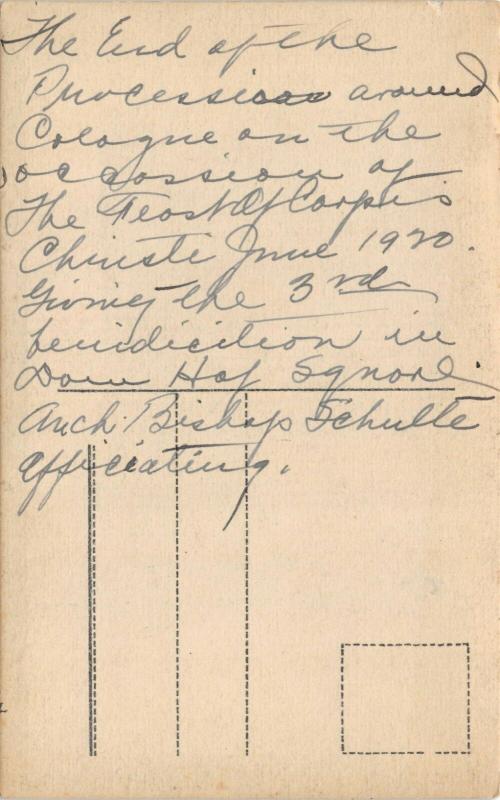 The End of the
Procession around
Cologne on the
occassion of
The Feast Of Corpus
Christi June 1920.
Giving the 3rd
benidicition in
Dom Hof Sqnare
Arch Bishop Schulte
officiating.